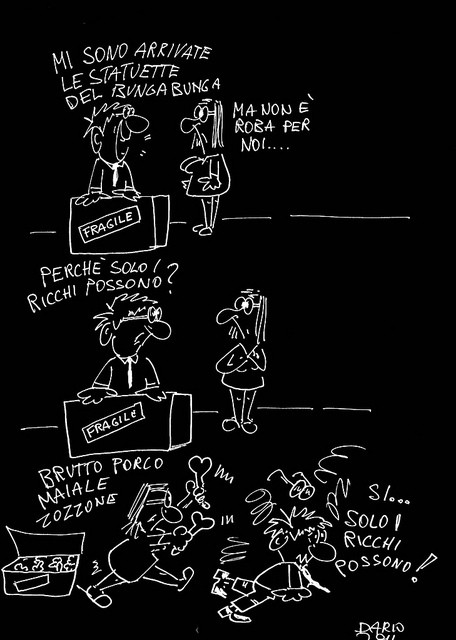 MI SONO ARRIVATE
LE STATUETTE
DEL BUNGABUNGA
MA NON È
ROBA PER
NOI....
FRAGILE
PERCHÈ SOLO I
RICCHI POSSONO?
FRAGILE
BRUTTO PORCO
MAIALE
ZOZZONE
SI...
SOLO I
RICCHI
POSSONO!
DARIO